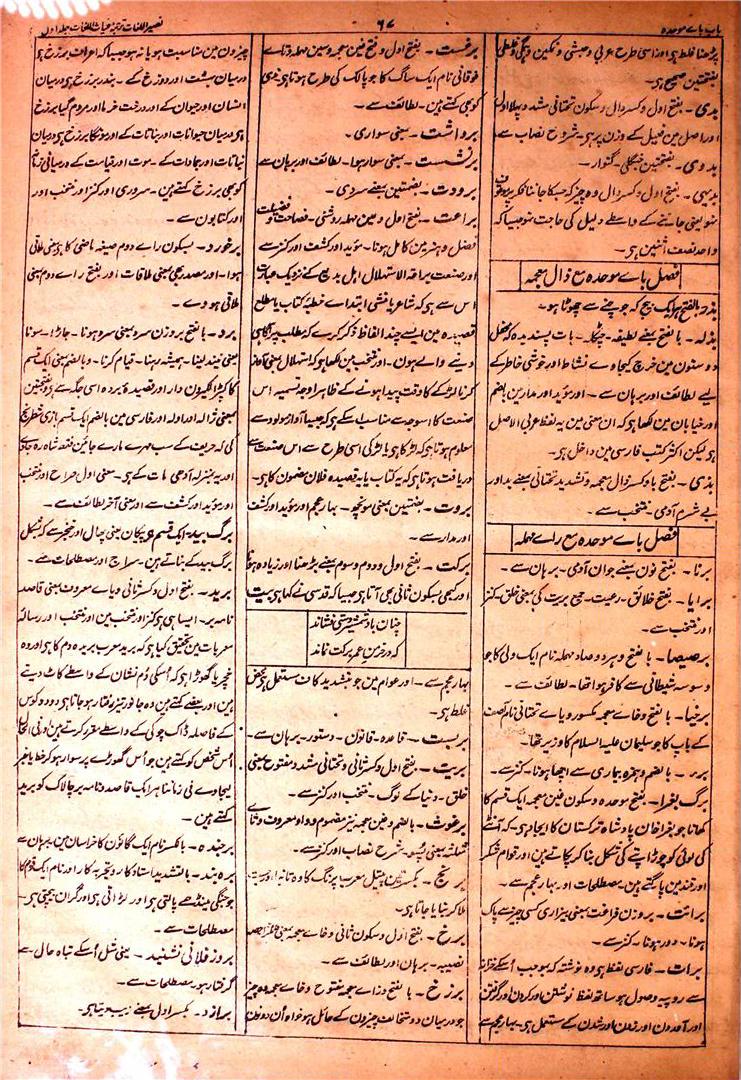 باب باے موحدہ
۶۷
نصیر اللغات ترجمہ غیاث اللغات جلد اول
پڑھنا غلط ہی اور اسی طرح عربی و حبشی و
بفتحتین صحیح ہی۔
بدی۔ بفتح اول و کسر دال و سکون تحتانی مشدد پہلا اول
اور اصل مین فعیل کے وزن پر ہی۔ شروح نصاب سے۔
بدوی۔ بفتحتین جنگلی۔ گنوار۔
بدیہی۔ بفتح اول و کسر دال وہ چیز کہ جسکا جاننا فکر پر موقوف
نہو یعنی جاننے کے واسطے دلیل کی حاجت نہو جیسا کہ
واحد نصف اثنین ہی۔
فصل باے موحدہ مع ذال معجمہ
بذر بالفتح ہر ایک بیج کہ جو چنے سے چھوٹا ہو۔
بذلہ۔ بالفتح بمعنی لطیفہ۔ چٹکلہ۔ بات پسندیدہ کہ محفل
دوستون مین خرچ کیجاوے نشاط اور خوشی خاطر کے
لیے لطائف اور برہان سے۔ اور مؤید اور مدار مین بالضم
اور خیابان مین لکھا ہی کہ ان معنی مین یہ لفظ عربی الاصل
ہی لیکن اکثر کتب فارسی مین داخل ہی۔
بذی۔ بفتح با و کسر ذال معجمہ و تشدید تحتانی بمعنی بد اور
بے شرم آدمی۔ منتخب سے۔
فصل باے موحدہ مع راے مہملہ
برنا۔ بفتح نون بمعنی جوان آدمی۔ برہان سے۔
برایا۔ بفتح خلائق۔ رعیت۔ جمع بریت کی بمعنی خلق۔ کنز
اور منتخب سے۔
برصیصا۔ بالفتح و ہر دو صاد مہملہ نام ایک ولی کا جو
وسوسہ شیطانی سے کافر ہوا تھا۔ لطائف سے۔
برخیا۔ بالفتح و خاے معجمہ مکسور و یاے تحتانی نام آصف
کے باپ کا جو سلیمان علیہ السلام کا وزیر تھا۔
برر۔ بالضم و ہمزہ بیماری سے اچھا ہونا۔ کنز سے۔
برگ بغرا۔ بفتح موحدہ و سکون غین معجمہ ایک قسم کا
کھانا جو بغرا خان بادشاہ ترکستان کا ایجاد ہی۔ کہ آٹے
کی لوئی کو چوڑا پتے کی شکل بنا کر پکاتے ہین اور قوام شکر
اور قند مین پاگتے ہین۔ مصطلحات اور بہار عجم سے۔
برائت۔ بروزن فراغت بمعنی بیزاری کسی چیز سے پاک
ہونا۔ دور ہونا۔ کنز سے۔
برات۔ فارسی لفظ ہی وہ نوشتہ کہ بموجب اُسکے خزانہ
سے روپیہ وصول ہو ساتھ لفظ نوشتن اور کردن اور گرفتن
اور آمدن اور زدن اور شدن کے مستعمل ہی۔ بہار عجم سے
برغست۔ بفتح اول و فتح غین معجمہ و سین مہملہ و تاے
فوقانی نام ایک ساگ کا جو پالک کی طرح ہوتا ہی
کہتے ہین۔ لطائف سے۔
برداشت۔ بمعنی سواری۔
برنشست۔ بمعنی سوار ہوا۔ لطائف اور برہان سے
برودت۔ بضمتین بمعنی سردی۔
براعت۔ بفتح اول و عین مہملہ روشنی۔ فصاحت و فضیلت
فضل و ہنر مین کامل ہونا۔ مؤید اور کشف اور کنز سے
اور صنعت براعۃ الاستہلال اہل بدیع کے نزدیک عبارت
اس سے ہی کہ شاعر یا منشی ابتداے خطبۂ کتاب یا مطلع
قصیدہ مین ایسے چند الفاظ ذکر کرے کہ مطلب پر آگاہی
دینے والے ہون۔ اور منتخب مین لکھا ہو کہ استہلال بمعنی آواز
کرنا لڑکے کا وقت پیدا ہونے کے ظاہرا وجہ تسمیہ اس
صنعت کا اسوجہ سے مناسب کے ہی کہ جیسا آواز مولود سے
معلوم ہوتا ہی کہ لڑکا ہی یا لڑکی اسی طرح سے اس صنعت سے
دریافت ہوتا ہی کہ یہ کتاب یا یہ قصیدہ فلان مضمون کا ہی۔
بروت۔ بضمتین بمعنی مونچھ۔ بہار عجم اور مؤید اور کشف
اور مدار سے۔
برکت۔ بفتح اول و دوم و سوم بمعنی بڑھنا اور زیادہ ہونا
اور کبھی بسکون ثانی بھی آتا ہی جیسا کہ قدسی نے کہا ہی بیت
چنان باد
کہ در خرمن عمر برکت نماند
بہار عجم سے۔ اور عوام مین جو بتشدید کاف مستعمل ہی محض
غلط ہی۔
بربست۔ قاعدہ۔ قانون۔ دستور۔ برہان سے۔
بریت۔ بفتح اول و کسر ثانی و تحتانی مشدد مفتوح بمعنی
خلق۔ دنیا کے لوگ۔ منتخب اور کنز سے۔
برغوث۔ بالضم و غین معجمہ نیز مضموم و واو معروف و ثاے
مثلثہ بمعنی پسو۔ شرح نصاب اور کنز سے۔
برنج۔ بکسرتین پیتل معرب پرنگ کا وہ تانبا اور جست
ملا کر بنایا جاتا ہی۔
برخ۔ بفتح اول و سکون ثانی و خاے معجمہ بمعنی حصہ
نصیبہ۔ برہان اور لطائف سے۔
برزخ۔ بالفتح و زاے معجمہ مفتوح و خاے معجمہ وہ چیز
جو درمیان دو متخالف چیزون کے حائل ہو خواہ اُن دونون
چیزون مین مناسبت ہو یا نہو جیسا کہ اعراف برزخ ہی
درمیان بہشت اور دوزخ کے۔ بندر برزخ ہی درمیان
انسان اور حیوان کے اور درخت خرما اور مردم گیا برزخ
ہی درمیان حیوانات اور نباتات کے اور مونگا برزخ ہی درمیان
نباتات اور جمادات کے۔ موت اور قیامت کے درمیانی زمانہ
کو بھی برزخ کہتے ہین۔ سروری اور کنز اور منتخب اور
اور کتابون سے۔
برخورد۔ بسکون راے دوم صیغہ ماضی کا ہی بمعنی ملاقی
ہوا۔ اور مصدر بھی بمعنی ملاقات اور بفتح راے دوم بمعنی
ملاقی ہووے۔
برد۔ بالفتح بروزن سرد بمعنی سرد ہونا۔ جاڑا۔ سونا
یعنی نیند لینا۔ ہمیشہ رہنا۔ قیام کرنا۔ و بالضم بمعنی ایک قسم
کا کپڑا لکیرون دار اور قصیدۂ بردہ اسی جگہ سے ہی و بفتحتین
بمعنی ژالہ اور اولہ اور فارسی مین بالضم ایک قسم بازی شطرنج
کی کہ حریف کے سب مہرے مارے جائین فقط شاہ رہ جاوے
اور یہ بمنزلہ آدھی مات کے ہی۔ معنی اول صراح اور منتخب
اور مؤید اور کشف سے اور معنی آخر لطائف سے۔
برگ بید۔ ایک قسم پیکان یعنی بھال اور خنجر سے کہ بشکل
برگ بید کے بناتے ہین۔ سراج اور مصطلحات سے۔
برید۔ بفتح اول و کسر ثانی و یاے معروف بمعنی قاصد
نامہ بر۔ ایسا ہی ہی کنز اور منتخب مین اور منتخب اور رسالہ
معربات مین تحقیق کیا ہی کہ برید معرب بریدہ دم کا ہی اور وہ
خچر یا گھوڑا ہی کہ اُسکی دُم نشان کے واسطے کاٹ دیتے
ہین اور بعضے کہتے ہین وہ جانور تیز رفتار ہو جاتا ہی دو دو کوس
کے فاصلہ ڈاک چوکی کے واسطے مقرر کرتے ہین اور فی الحال
اُس شخص کو کہتے ہین جو اُس گھوڑے پر سوار ہو کر خط یا خبر
لیجاوے فی زماننا ہر ایک قاصد و نامہ بر چالاک کو برید
کہتے ہین۔
برجندہ۔ بالکسر نام ایک گانؤن کا خراسان مین برہان سے
برہ بند۔ بالتشدید استاد کار و تجربہ کار اور نام ایک قوم کا
جو جنگی مینڈھے پالتی ہی اور لڑاتی ہی اور گران بیچتی ہی۔
مصطلحات سے۔
بروز فلانی نشنید۔ یعنی مثل اُسکے تباہ حال سے
گرفتار ہو۔ مصطلحات سے۔
برازد۔ بکسر اول بمعنی زیب دیتا ہی۔